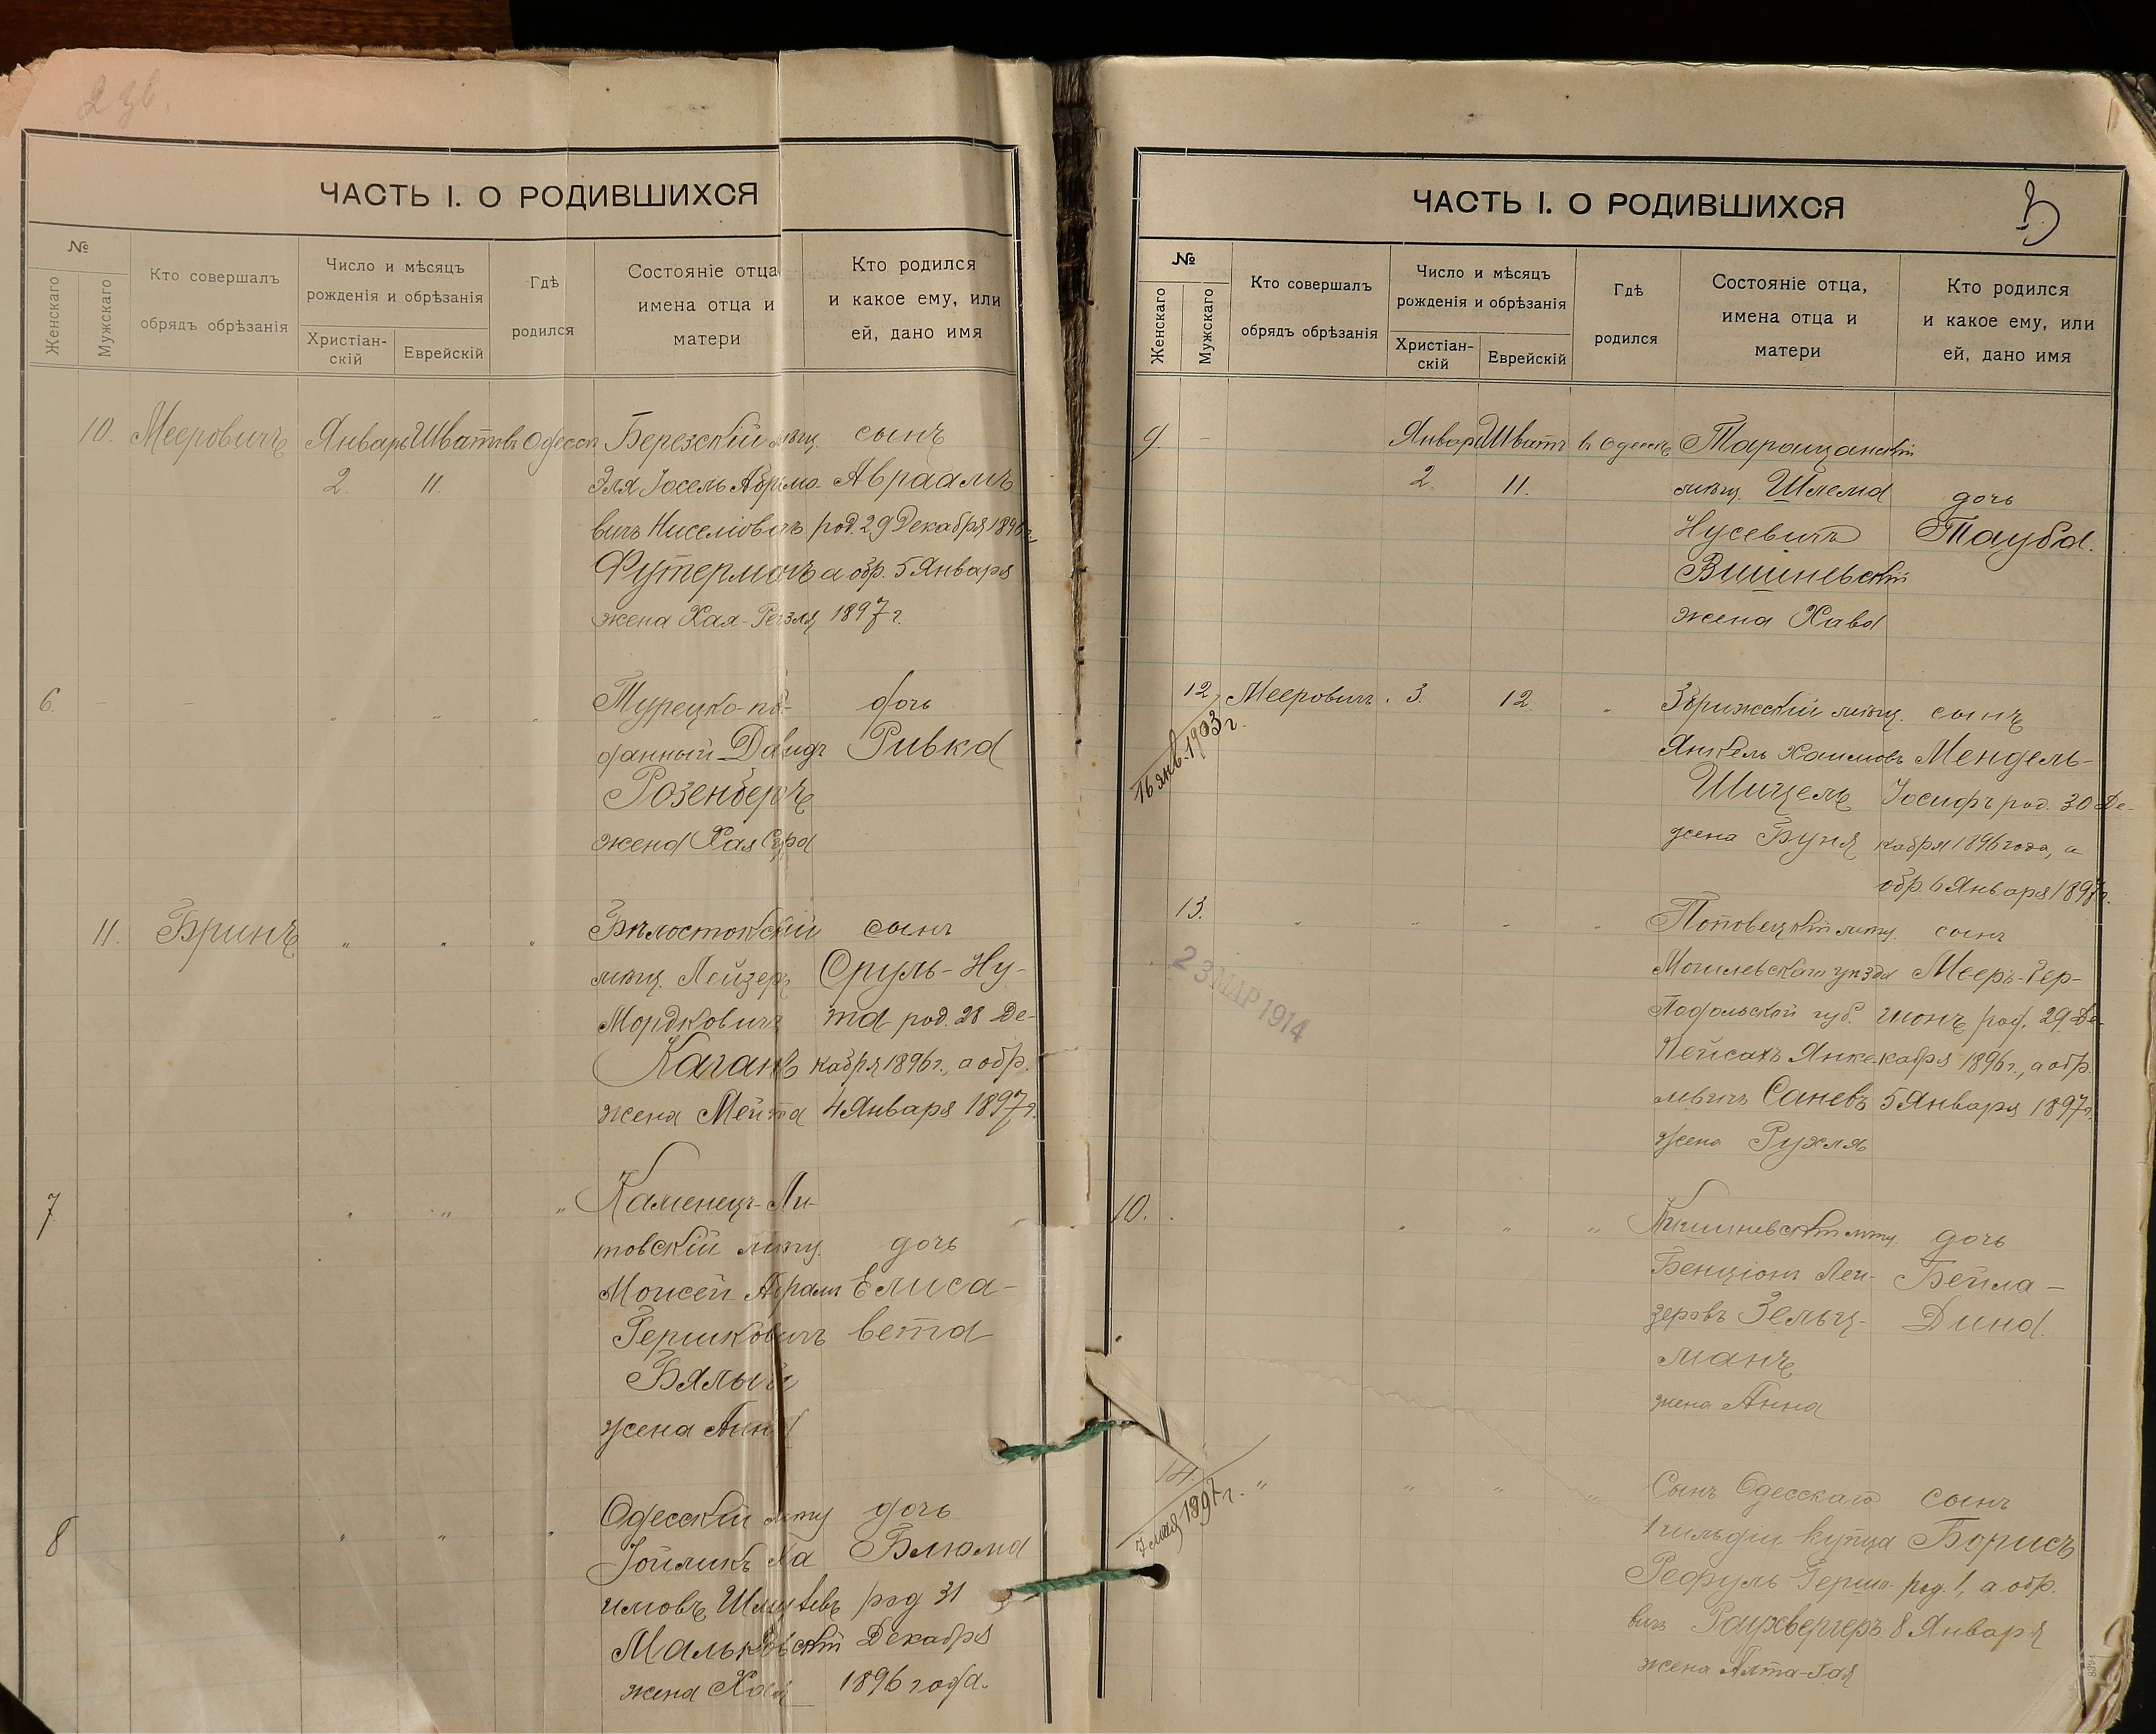 ЧАСТЬ I. О РОДИВШИХСЯ
№
Женскаго
Мужскаго
Кто совершалъ
обрядъ обрѣзанія
Число и мѣсяцъ
рожденія и обрѣзанія
Христіан-
скій
Еврейскій
Гдѣ
родился
Состояніе отца
имена отца и
матери
Кто родился
и какое ему, или
ей, дано имя
10. Мееровичъ Январь Шватъ въ Одессѣ Березскій мѣщ. сынъ
2. 11. Эля Іосель Абрамо- Авраамъ
вичъ Ниселіовичъ род. 29 Декабря 1896 г.,
Футерманъ а обр. 5 Января
жена Хая- 1897 г.
6. - - " " " Турецко-по- дочь
данный Давидъ Ривка
Розенбергъ
жена Хая Сура
11. Бринъ " " " Бѣлостокскій сынъ
мѣщ. Лейзеръ Сруль-Ну-
Мордковичъ та род. 28 Де-
Каганъ кабря 1896 г., а обр.
жена Мейта 4 Января 1897 г.
7 " " " Каменецъ-Ли-
товскій мѣщ. дочь
Моисей Абрамъ Елиса-
Гершковичъ вета
Бялый
жена Анна
8 " " " Одесскій мѣщ дочь
Іойликъ Ха Блюма
имовъ род 31
Мальковскій Декабря
жена Хая 1896 года.
ЧАСТЬ I. О РОДИВШИХСЯ
3
№
Женскаго
Мужскаго
Кто совершалъ
обрядъ обрѣзанія
Число и мѣсяцъ
рожденія и обрѣзанія
Христіан-
скій
Еврейскій
Гдѣ
родился
Состояніе отца,
имена отца и
матери
Кто родился
и какое ему, или
ей, дано имя
9. - Январь Шватъ въ Одессѣ Таращанскій
2. 11. мѣщ. Шлема дочь
Нусевичъ Тауба.
Вишневскій
жена Хава
12 Мееровичъ. 3. 12 " мѣщ. сынъ
16 янв. 1903 г.
Янкель Хаимовъ Мендель-
Шицель Іосифъ род. 30 Де-
жена Буня кабря 1896 года, а
обр. 6 Января 1897 г.
13. " " " " мѣщ. сынъ
23 МАР 1914
Могилевскаго уѣзда Мееръ-Гер-
Подольской губ. шонъ род. 29 Де-
Пейсахъ Янке- кабря 1896 г., а обр.
левичъ Саневъ 5 Января 1897 г.
жена Рухля
10. " " " Кишиневскій мѣщ. дочь
Бенціонъ Лей- Бейла-
зеровъ Зельц- Дина.
манъ
жена Анна
14. " " " " Сынъ Одесскаго сынъ
7 мая 1897 г.
1 гильдіи купца Борисъ
Рефуль Герше- род. 1, а обр.
вичъ Раухвергеръ 8 Января
жена Алта-Гая